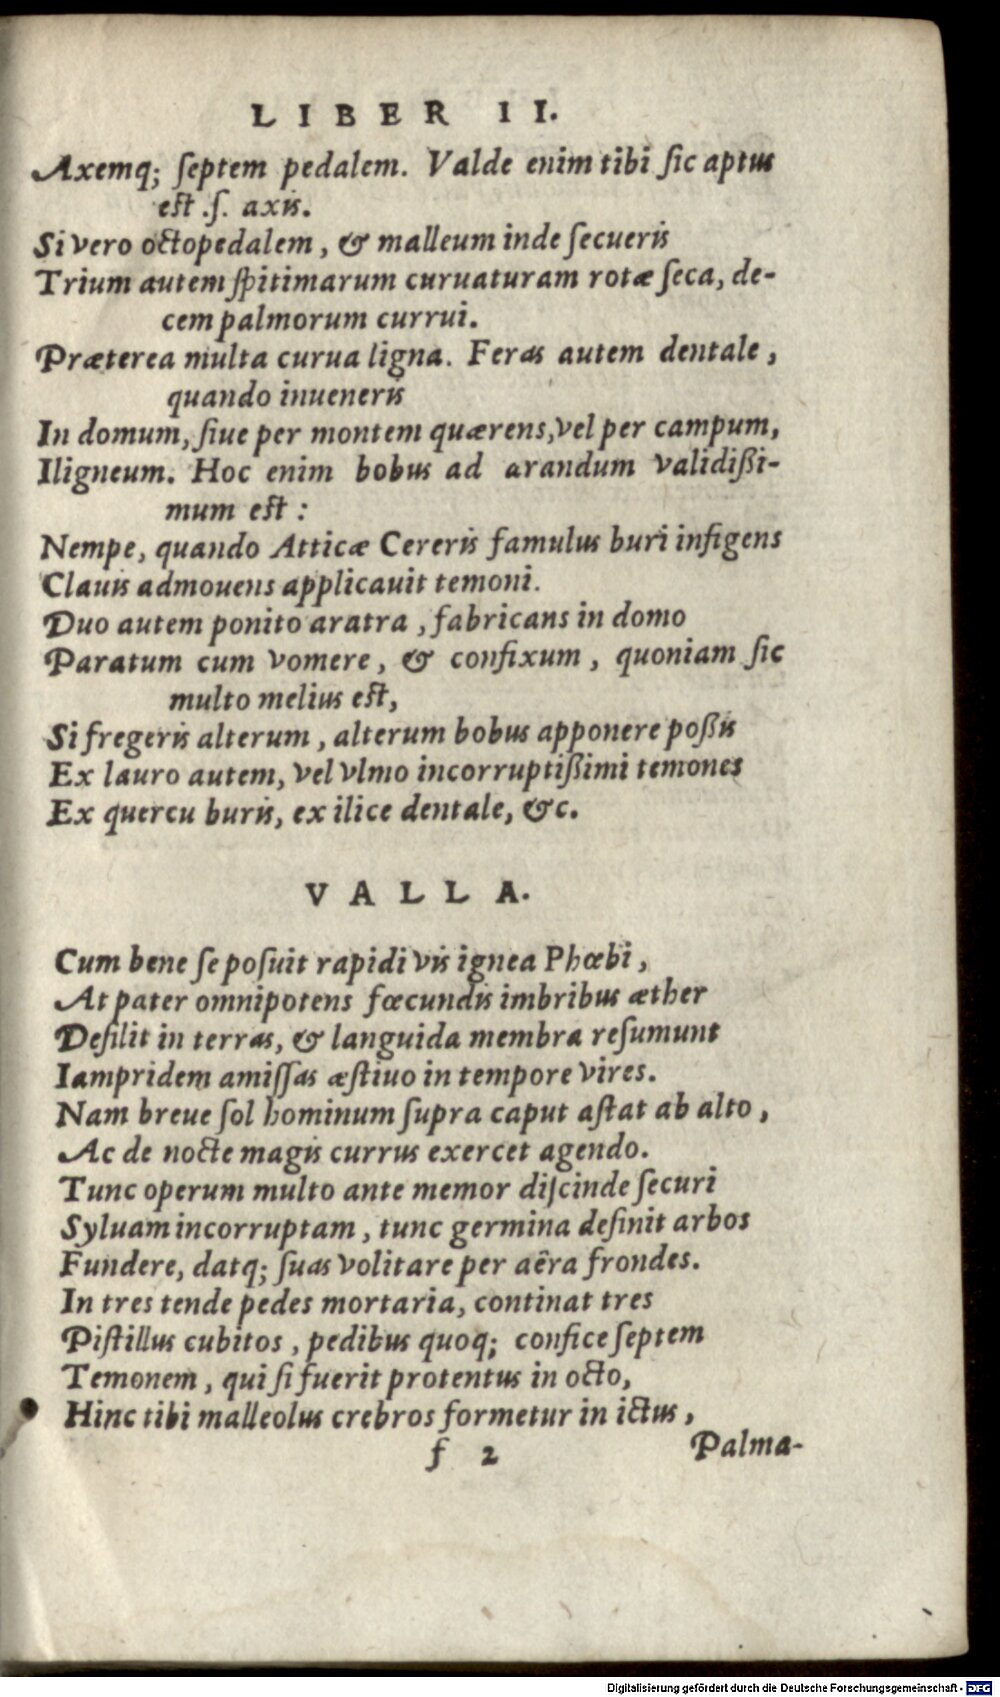 LIBER II.
Axemq; ſeptem pedalem. Valde enim tibi ſic aptus
eſt .ſ. axis.
Si vero octopedalem, & malleum inde ſecueris
Trium autem ſpitimarum curuaturam rotæ ſeca, de-
cem palmorum currui.
Præterea multa curua ligna. Feras autem dentale,
quando inueneris
In domum, ſiue per montem quærens, vel per campum,
Iligneum. Hoc enim bobus ad arandum validißi-
mum eſt :
Nempe, quando Atticæ Cereris famulus buri infigens
Clauis admouens applicauit temoni.
Duo autem ponito aratra, fabricans in domo
Paratum cum vomere, & confixum, quoniam ſic
multo melius eſt,
Si fregeris alterum, alterum bobus apponere poßis
Ex lauro autem, vel vlmo incorruptißimi temones
Ex quercu buris, ex ilice dentale, &c.
VALLA.
Cum bene ſe poſuit rapidi vis ignea Phœbi,
At pater omnipotens fœcundis imbribus æther
Deſilit in terras, & languida membra reſumunt
Iampridem amiſſas æſtiuo in tempore vires.
Nam breue ſol hominum ſupra caput aſtat ab alto,
Ac de nocte magis currus exercet agendo.
Tunc operum multo ante memor diſcinde ſecuri
Syluam incorruptam, tunc germina deſinit arbos
Fundere, datq; ſuas volitare per aëra frondes.
In tres tende pedes mortaria, continat tres
Piſtillus cubitos, pedibus quoq; confice ſeptem
Temonem, qui ſi fuerit protentus in octo,
Hinc tibi malleolus crebros formetur in ictus,
f 2 Palma-
Digitalisierung gefördert durch die Deutsche Forschungsgemeinschaft - DFG